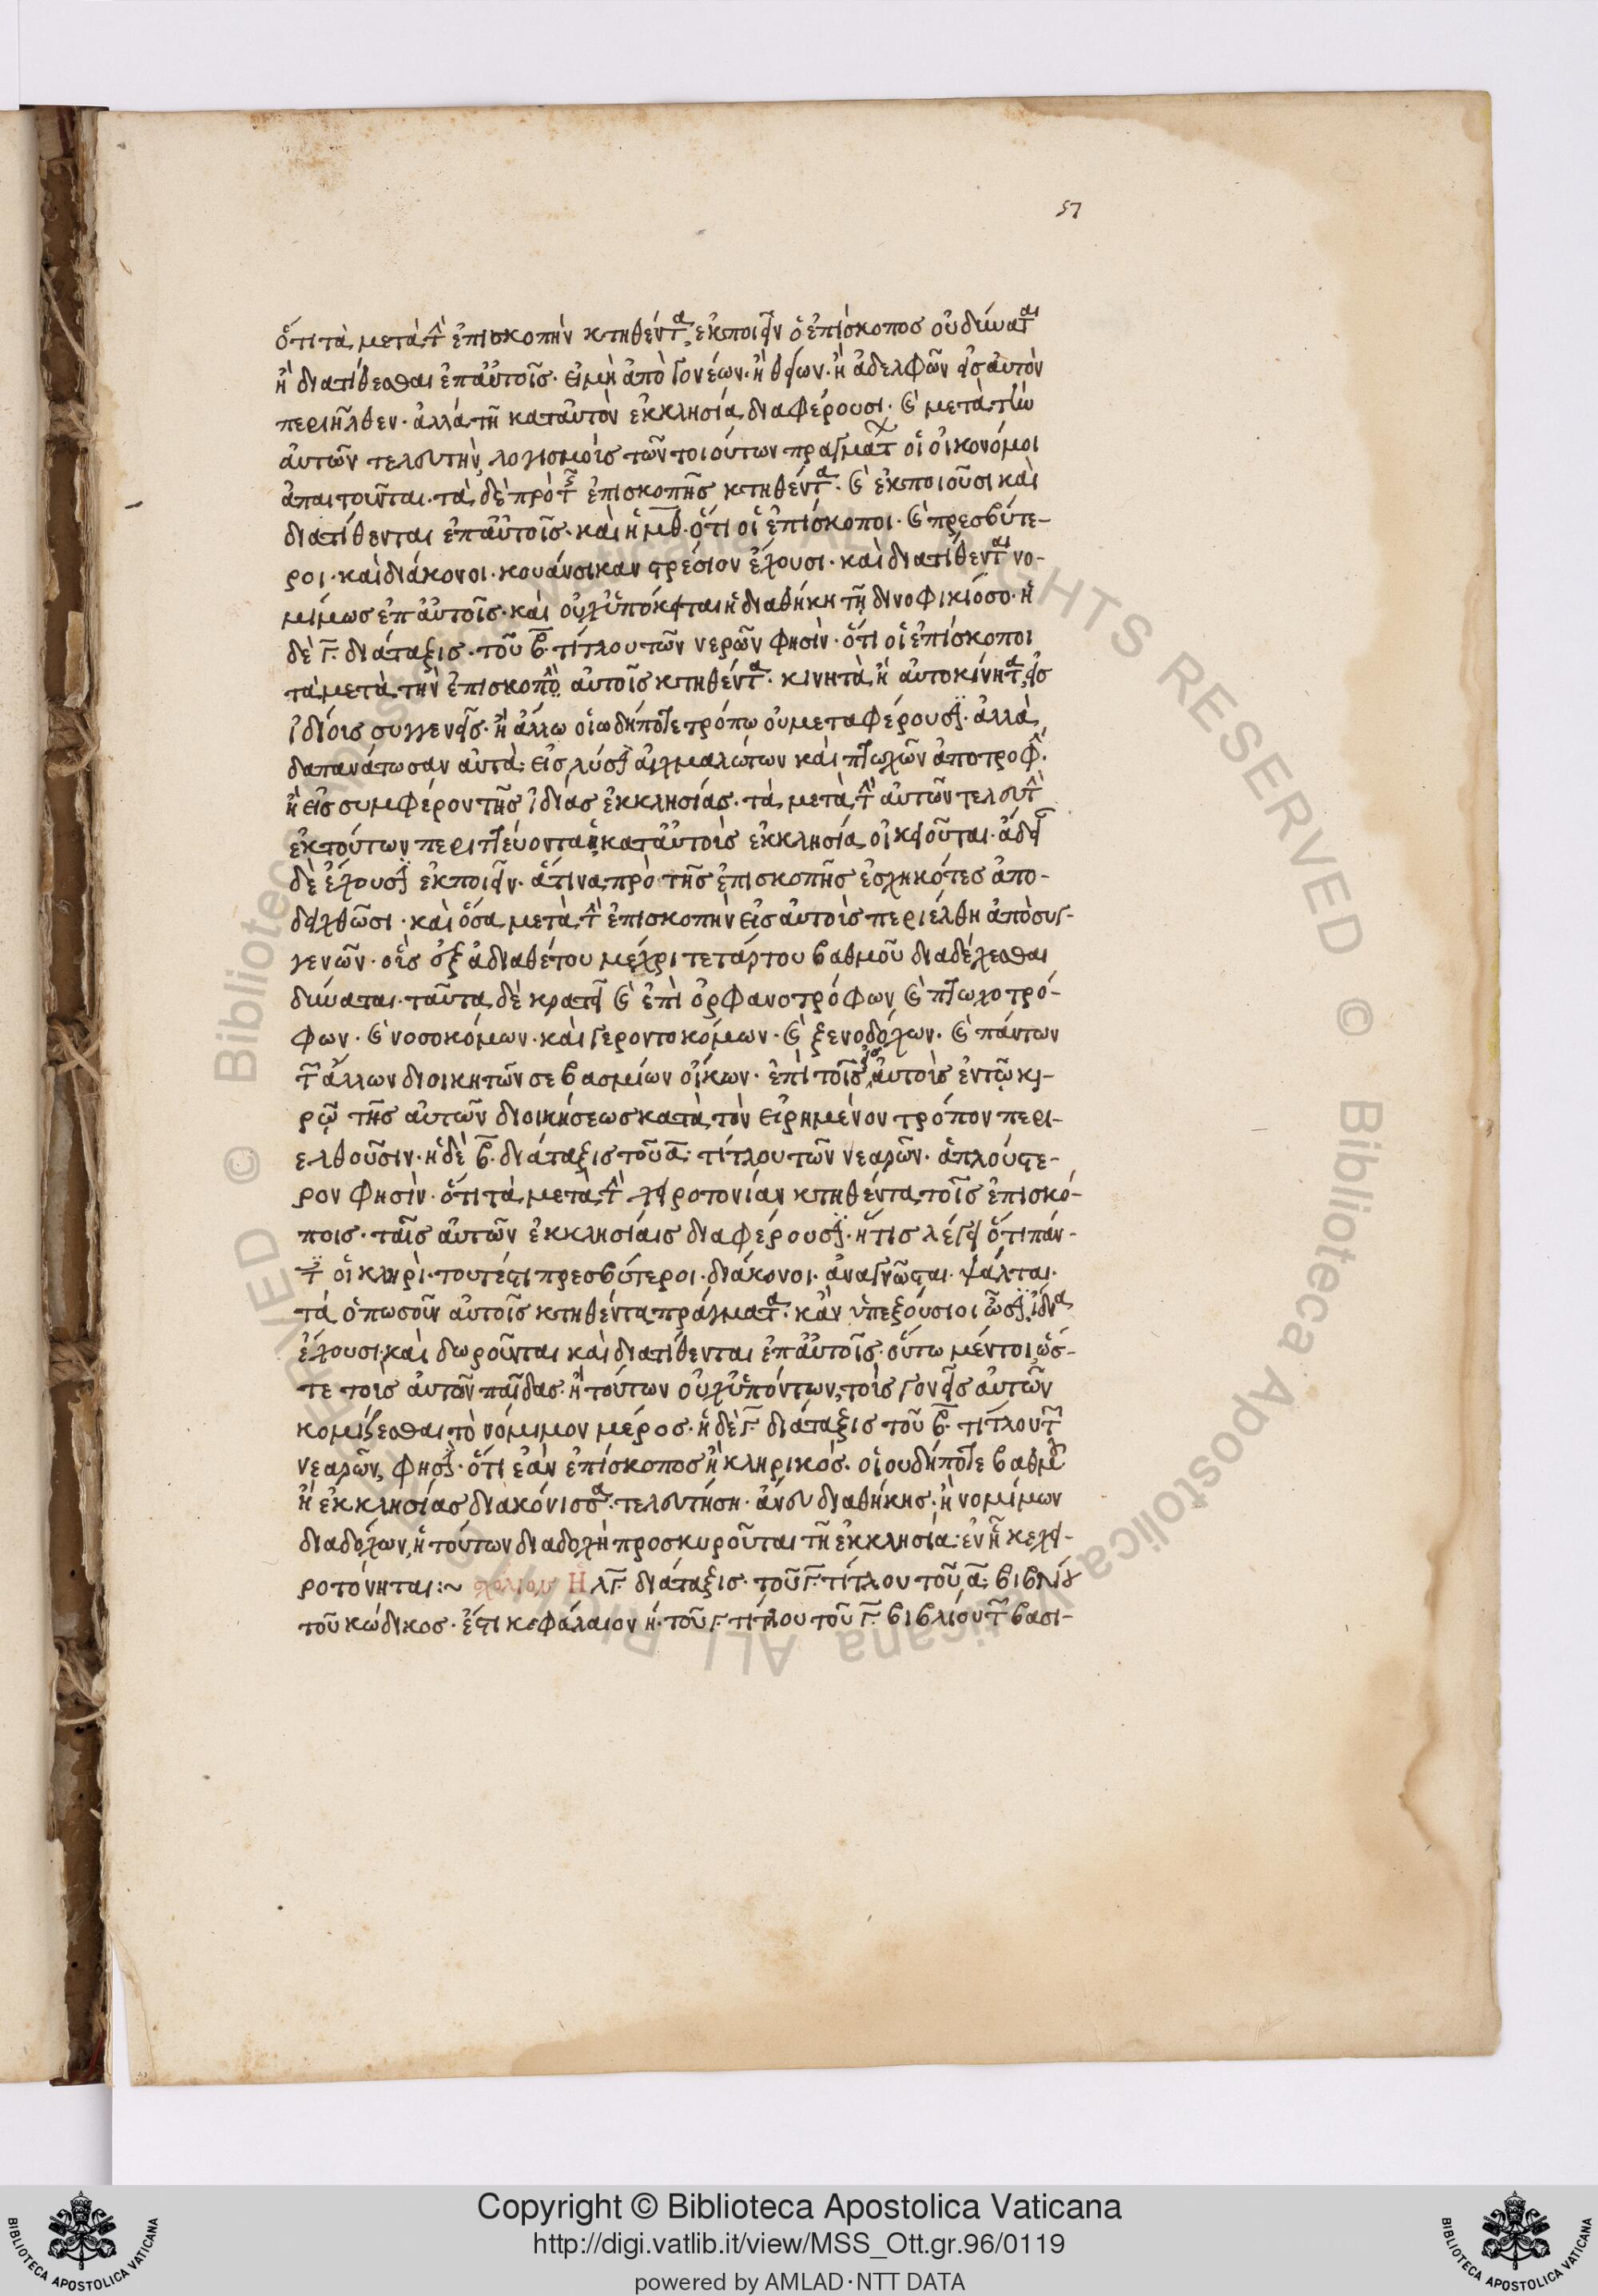 57
ὅτι τὰ μετὰ τ̂ ἐπισκοπὴν κτηθέντα, ἐκποιεῖν ὁ ἐπίσκοπος οὐ δύναται
ἢ διατίθεσθαι ἐπ αὐτοῖς· εἰ μὴ ἀπὸ γονέων· ἢ θείων· ἢ ἀδελφῶν εἰς αὐτὸν
περιῆλθεν· ἀλλὰ τῆ κατ αὐτὸν ἐκκλησία διαφέρουσι· καὶ μετὰ τὴν
αὐτῶν τελευτὴν, λογισμοὺς τῶν τοιούτων πραγμάτ οἱ οἰκονόμοι
ἀπαιτοῦνται· τὰ δὲ πρὸ τ̂ ἐπισκοπῆς κτηθέντα· καὶ ἐκποιοῦσι καὶ
διατίθενται ἐπ αὐτοῖς· καὶ ἡ μθ· ὅτι οἱ ἐπίσκοποι· καὶ πρεσβύτε-
ροι· καὶ διάκονοι· κουάνσικαν στρέσιον ἔχουσι· καὶ διατίθενται νο-
μίμως ἐπ αὐτοῖς· καὶ οὐχ ὑπόκειται ἡ διαθήκη τῆ δινοφικιόσο· ἡ
δὲ γ· διάταξις· τοῦ β· τίτλου τῶν νερῶν φησὶν· ὅτι οἱ ἐπίσκοποι
τὰ μετὰ τὴν ἐπισκοπὴν αὐτοῖς κτηθέντα· κινητὰ ἢ αὐτοκίνητα, εἰς
ἰδίους συγγενεῖς· ἢ ἄλλω οἱωδήποτε τρόπω οὐ μεταφέρουσιν· ἀλλὰ
δαπανάτωσαν αὐτὰ· εἰς λύσιν αἰχμαλώτων καὶ πτωχῶν ἀποτροφ·
ἢ εἰς συμφέρον τῆς ἰδίας ἐκκλησίας· τὰ μετὰ τ̂ αὐτῶν τελευτ
ἐκ τούτων περιττεύοντα ἡ κατ αὐτοὺς ἐκκλησία οἰκειοῦται· ἄδειαν
δὲ ἔχουσιν ἐκποιεῖν· ἅτινα πρὸ τῆς ἐπισκοπῆς ἐσχηκότες ἀπο-
δειχθῶσι· καὶ ὅσα μετὰ τ̂ ἐπισκοπὴν εἰς αὐτοὺς περιέλθη ἀπὸ συγ-
γενῶν· οὓς ἐξ ἀδιαθέτου μέχρι τετάρτου βαθμοῦ διαδέχεσθαι
δύναται· ταῦτα δὲ κρατεῖ καὶ ἐπὶ ὀρφανοτρόφων, καὶ πτωχοτρό-
φων· καὶ νοσοκόμων· καὶ γεροντοκόμων· καὶ ξενοδόχων· καὶ πάντων
τ̂ ἄλλων διοικητῶν σεβασμίων οἴκων· ἐπὶ τοῖς εἰς αὐτοὺς ἐν τῶ και-
ρῶ τῆς αὐτῶν διοικήσεως κατὰ τὸν εἰρημένον τρόπον περι-
ελθοῦσιν· ἡ δὲ β· διάταξις τοῦ α· τίτλου τῶν νεαρῶν· ἁπλούστε-
ρον φησὶν· ὅτι τὰ μετὰ τ̂ χειροτονίαν κτηθέντα τοῖς ἐπισκό-
ποις· ταῖς αὐτῶν ἐκκλησίαις διαφέρουσιν· ἥτις λέγει ὅτι πάν-
τ οἱ κληρι· τουτέστι πρεσβύτεροι· διάκονοι· ἀναγνῶσται· ψάλται·
τὰ ὁπωσοῦν αὐτοῖς κτηθέντα πράγματα· κἂν ὑπεξούσιοι ὦσιν ἴδια
ἔχουσι· καὶ δωροῦνται καὶ διατίθενται ἐπ αὐτοῖς· οὕτω μέντοι, ὥσ-
τε τοὺς αὐτῶν παῖδας· ἢ τούτων οὐχ ὑπόντων, τοὺς γονεῖς αὐτῶν
κομίζεσθαι τὸ νόμιμον μέρος· ἡ δὲ γ· διάταξις τοῦ β· τίτλου τ̂
νεαρῶν, φησὶν· ὅτι ἐὰν ἐπίσκοπος ἢ κληρικὸς· οἱουδήποτε βαθμοῦ
ἢ ἐκκλησίας διακόνισσα· τελευτήση· ἄνευ διαθήκης· ἢ νομίμων
διαδόχων, ἡ τούτων διαδοχὴ προσκυροῦται τῆ ἐκκλησία· ἐν ἧ κεχει-
ροτόνηται:~ σχόλιον Η λγ διάταξις· τοῦ γ· τίτλου τοῦ α· βιβλίου
τοῦ κώδικος· ἔστι κεφάλαιον η· τοῦ γ· τίτλου τοῦ γ· βιβλίου τ̂ βασι-
Copyright © Biblioteca Apostolica Vaticana
http://digi.vatlib.it/view/MSS_Ott.gr.96/0119
powered by AMLAD·NTT DATA